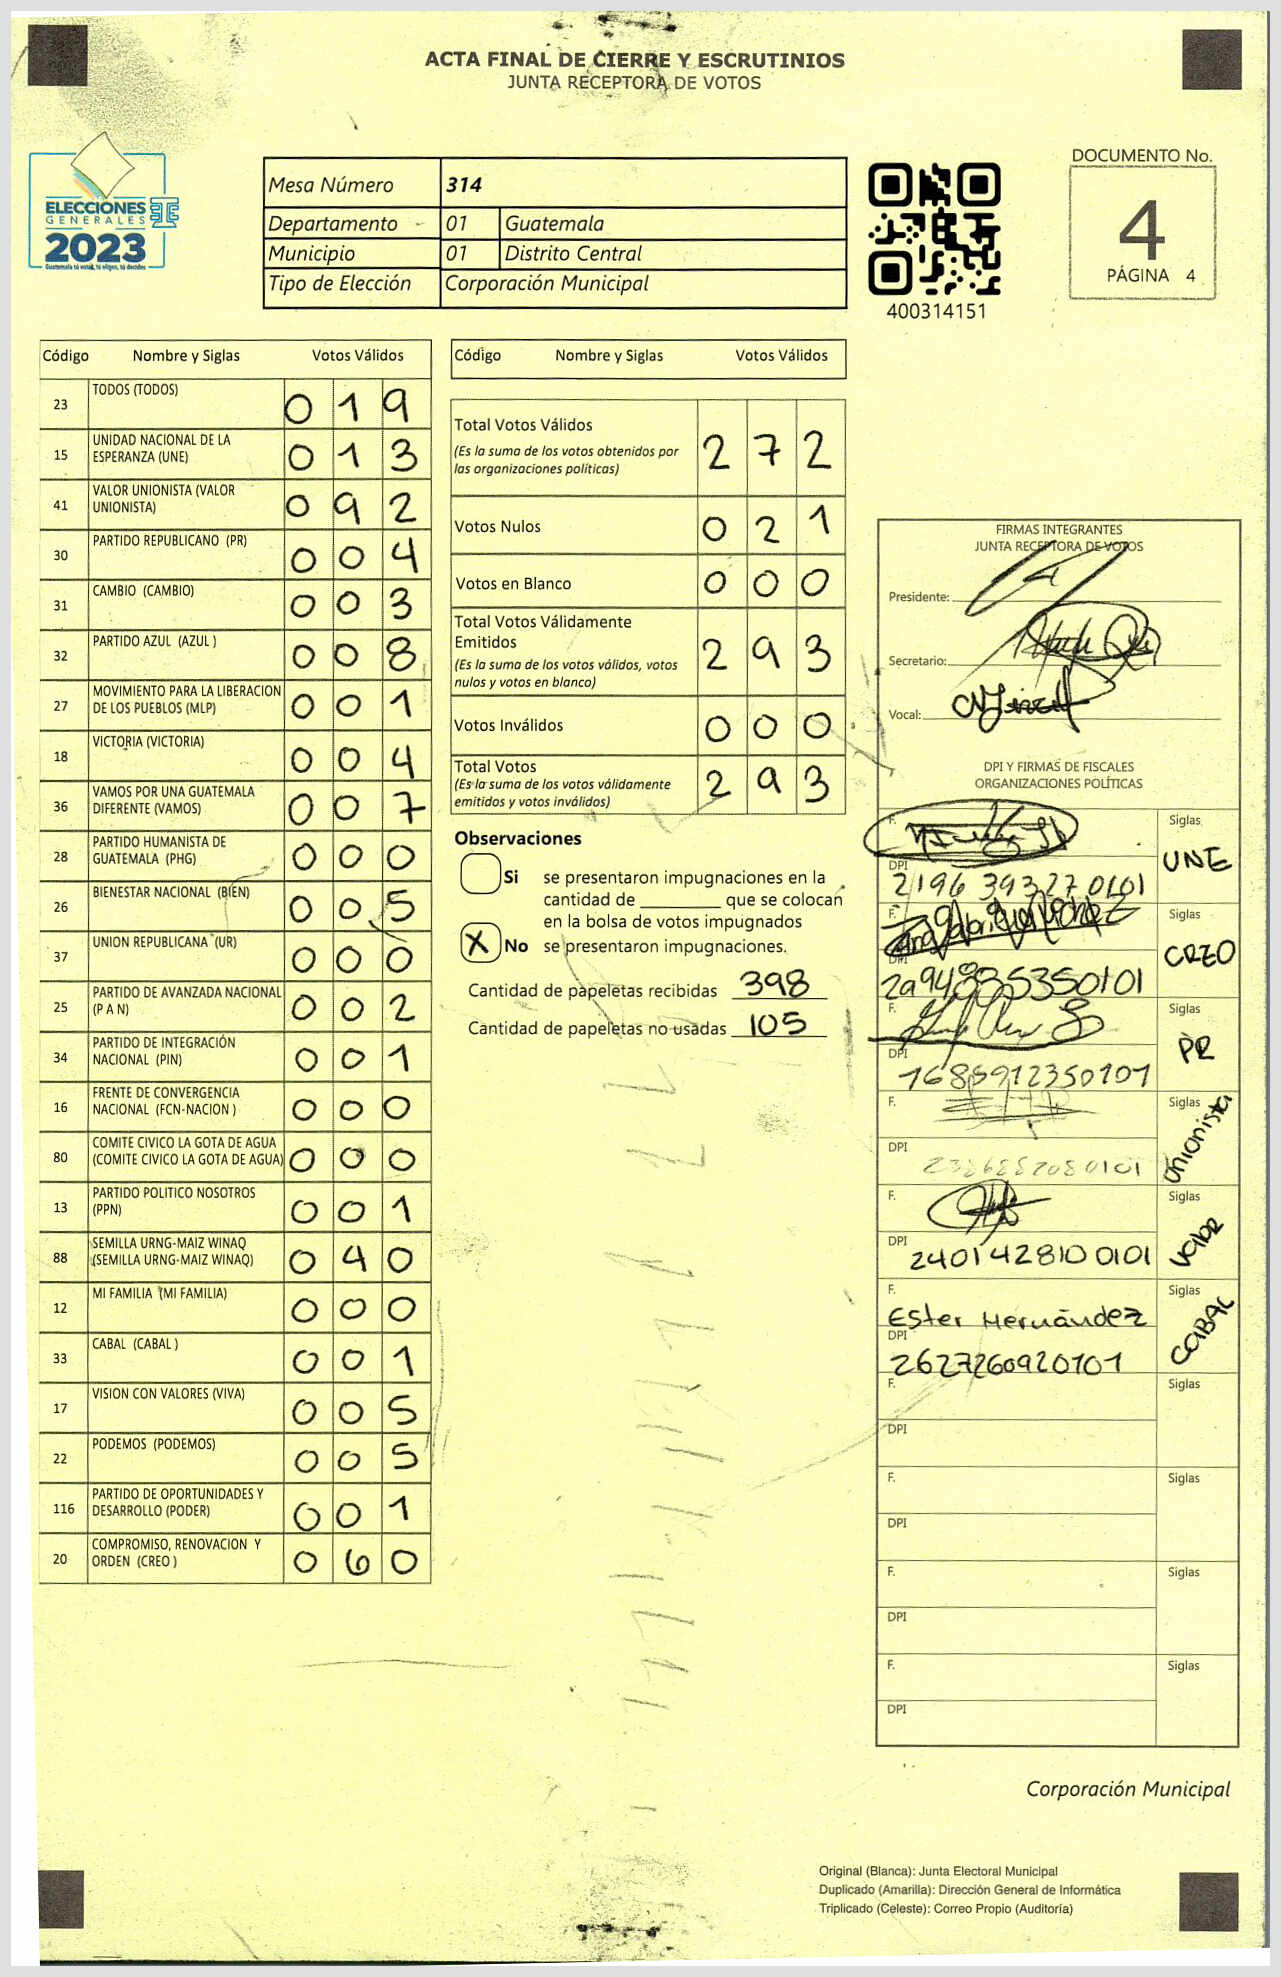 ACTA FINAL DE CIERRE Y ESCRUTINIOS
JUNTA RECEPTORA DE VOTOS
ELECCIONES
GENERALES
2023
Guatemala tú votas, tú eliges, tú decides
Mesa Número 314
Departamento 01 Guatemala
Municipio 01 Distrito Central
Tipo de Elección Corporación Municipal
400314151
DOCUMENTO No.
4
PÁGINA 4
Código Nombre y Siglas Votos Válidos
23 TODOS (TODOS) 0 1 9
15 UNIDAD NACIONAL DE LA ESPERANZA (UNE) 0 1 3
41 VALOR UNIONISTA (VALOR UNIONISTA) 0 9 2
30 PARTIDO REPUBLICANO (PR) 0 0 4
31 CAMBIO (CAMBIO) 0 0 3
32 PARTIDO AZUL (AZUL ) 0 0 8
27 MOVIMIENTO PARA LA LIBERACION DE LOS PUEBLOS (MLP) 0 0 1
18 VICTORIA (VICTORIA) 0 0 4
36 VAMOS POR UNA GUATEMALA DIFERENTE (VAMOS) 0 0 7
28 PARTIDO HUMANISTA DE GUATEMALA (PHG) 0 0 0
26 BIENESTAR NACIONAL (BIEN) 0 0 5
37 UNION REPUBLICANA (UR) 0 0 0
25 PARTIDO DE AVANZADA NACIONAL (P A N) 0 0 2
34 PARTIDO DE INTEGRACIÓN NACIONAL (PIN) 0 0 1
16 FRENTE DE CONVERGENCIA NACIONAL (FCN-NACION ) 0 0 0
80 COMITE CIVICO LA GOTA DE AGUA (COMITE CIVICO LA GOTA DE AGUA) 0 0 0
13 PARTIDO POLITICO NOSOTROS (PPN) 0 0 1
88 SEMILLA URNG-MAIZ WINAQ (SEMILLA URNG-MAIZ WINAQ) 0 4 0
12 MI FAMILIA (MI FAMILIA) 0 0 0
33 CABAL (CABAL ) 0 0 1
17 VISION CON VALORES (VIVA) 0 0 5
22 PODEMOS (PODEMOS) 0 0 5
116 PARTIDO DE OPORTUNIDADES Y DESARROLLO (PODER) 0 0 1
20 COMPROMISO, RENOVACION Y ORDEN (CREO ) 0 6 0
Código Nombre y Siglas Votos Válidos
Total Votos Válidos 2 7 2
(Es la suma de los votos obtenidos por
las organizaciones políticas)
Votos Nulos 0 2 1
Votos en Blanco 0 0 0
Total Votos Válidamente
Emitidos 2 9 3
(Es la suma de los votos válidos, votos
nulos y votos en blanco)
Votos Inválidos 0 0 0
Total Votos 2 9 3
(Es la suma de los votos válidamente
emitidos y votos inválidos)
Observaciones
Si se presentaron impugnaciones en la
cantidad de ________ que se colocan
en la bolsa de votos impugnados
X No se presentaron impugnaciones.
Cantidad de papeletas recibidas 398
Cantidad de papeletas no usadas 105
FIRMAS INTEGRANTES
JUNTA RECEPTORA DE VOTOS
Presidente:
Secretario:
Vocal:
DPI Y FIRMAS DE FISCALES
ORGANIZACIONES POLÍTICAS
F. Siglas UNE
DPI 2196 39327 0101
F. Siglas CREO
DPI
F. Siglas PR
DPI 1685912350101
F. Siglas Unionista
DPI
F. Siglas Valor
DPI 2401428100101
F. Ester Hernández Siglas CABAL
DPI 2627260920101
F. Siglas
DPI
F. Siglas
DPI
F. Siglas
DPI
F. Siglas
DPI
Corporación Municipal
Original (Blanca): Junta Electoral Municipal
Duplicado (Amarilla): Dirección General de Informática
Triplicado (Celeste): Correo Propio (Auditoría)